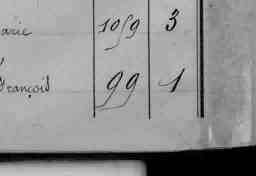 arie 1059 3
François 99 1